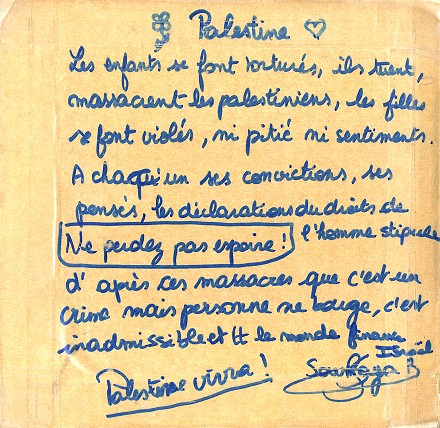 Palestine
Les enfants se font torturés, ils tuent,
massacrent les palestiniens, les filles
se font violés, ni pitié ni sentiments.
A chaqu'un ses convictions, ses
pensés, les déclarations du droits de
l'homme stipule
Ne perdez pas espoire !
d'après ces massacres que c'est un
crime mais personne ne bouge, c'est
inadmissible et tt le monde finance
Israël
Palestine vivra !
Soumaya B